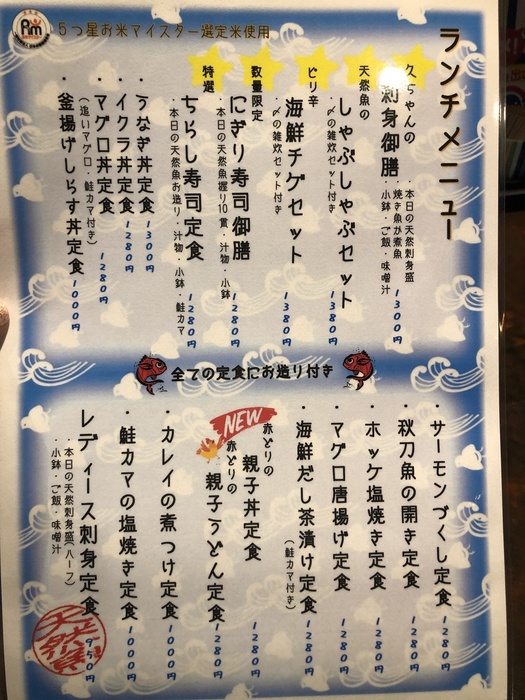 ５つ星お米マイスター選定米使用
ランチメニュー
久ちゃんの
刺身御膳
・本日の天然刺身盛
・焼き魚か煮魚
・小鉢・ご飯・味噌汁
１３００円
天然魚の
しゃぶしゃぶセット
・〆の雑炊セット付き
１３８０円
ピリ辛
海鮮チゲセット
・〆の雑炊セット付き
１３８０円
数量限定
にぎり寿司御膳
・本日の天然魚握り10貫・汁物・小鉢
１２８０円
特選
ちらし寿司定食
・本日の天然魚お造り・汁物・小鉢・鮭カマ
１２８０円
・うなぎ丼定食
１３００円
・イクラ丼定食
１２８０円
・マグロ丼定食
(追いマグロ・鮭カマ付き)
１２８０円
・釜揚げしらす丼定食
１０００円
全ての定食にお造り付き
・サーモンづくし定食
１２８０円
・秋刀魚の開き定食
１２８０円
・ホッケ塩焼き定食
１２８０円
・マグロ唐揚げ定食
１２８０円
・海鮮だし茶漬け定食
(鮭カマ付き)
１２８０円
NEW
赤どりの
親子丼定食
１２８０円
赤どりの
親子うどん定食
１２８０円
・カレイの煮つけ定食
１０００円
・鮭カマの塩焼き定食
１０００円
・レディース刺身定食
・本日の天然刺身盛(ハーフ)
・小鉢・ご飯・味噌汁
９５０円